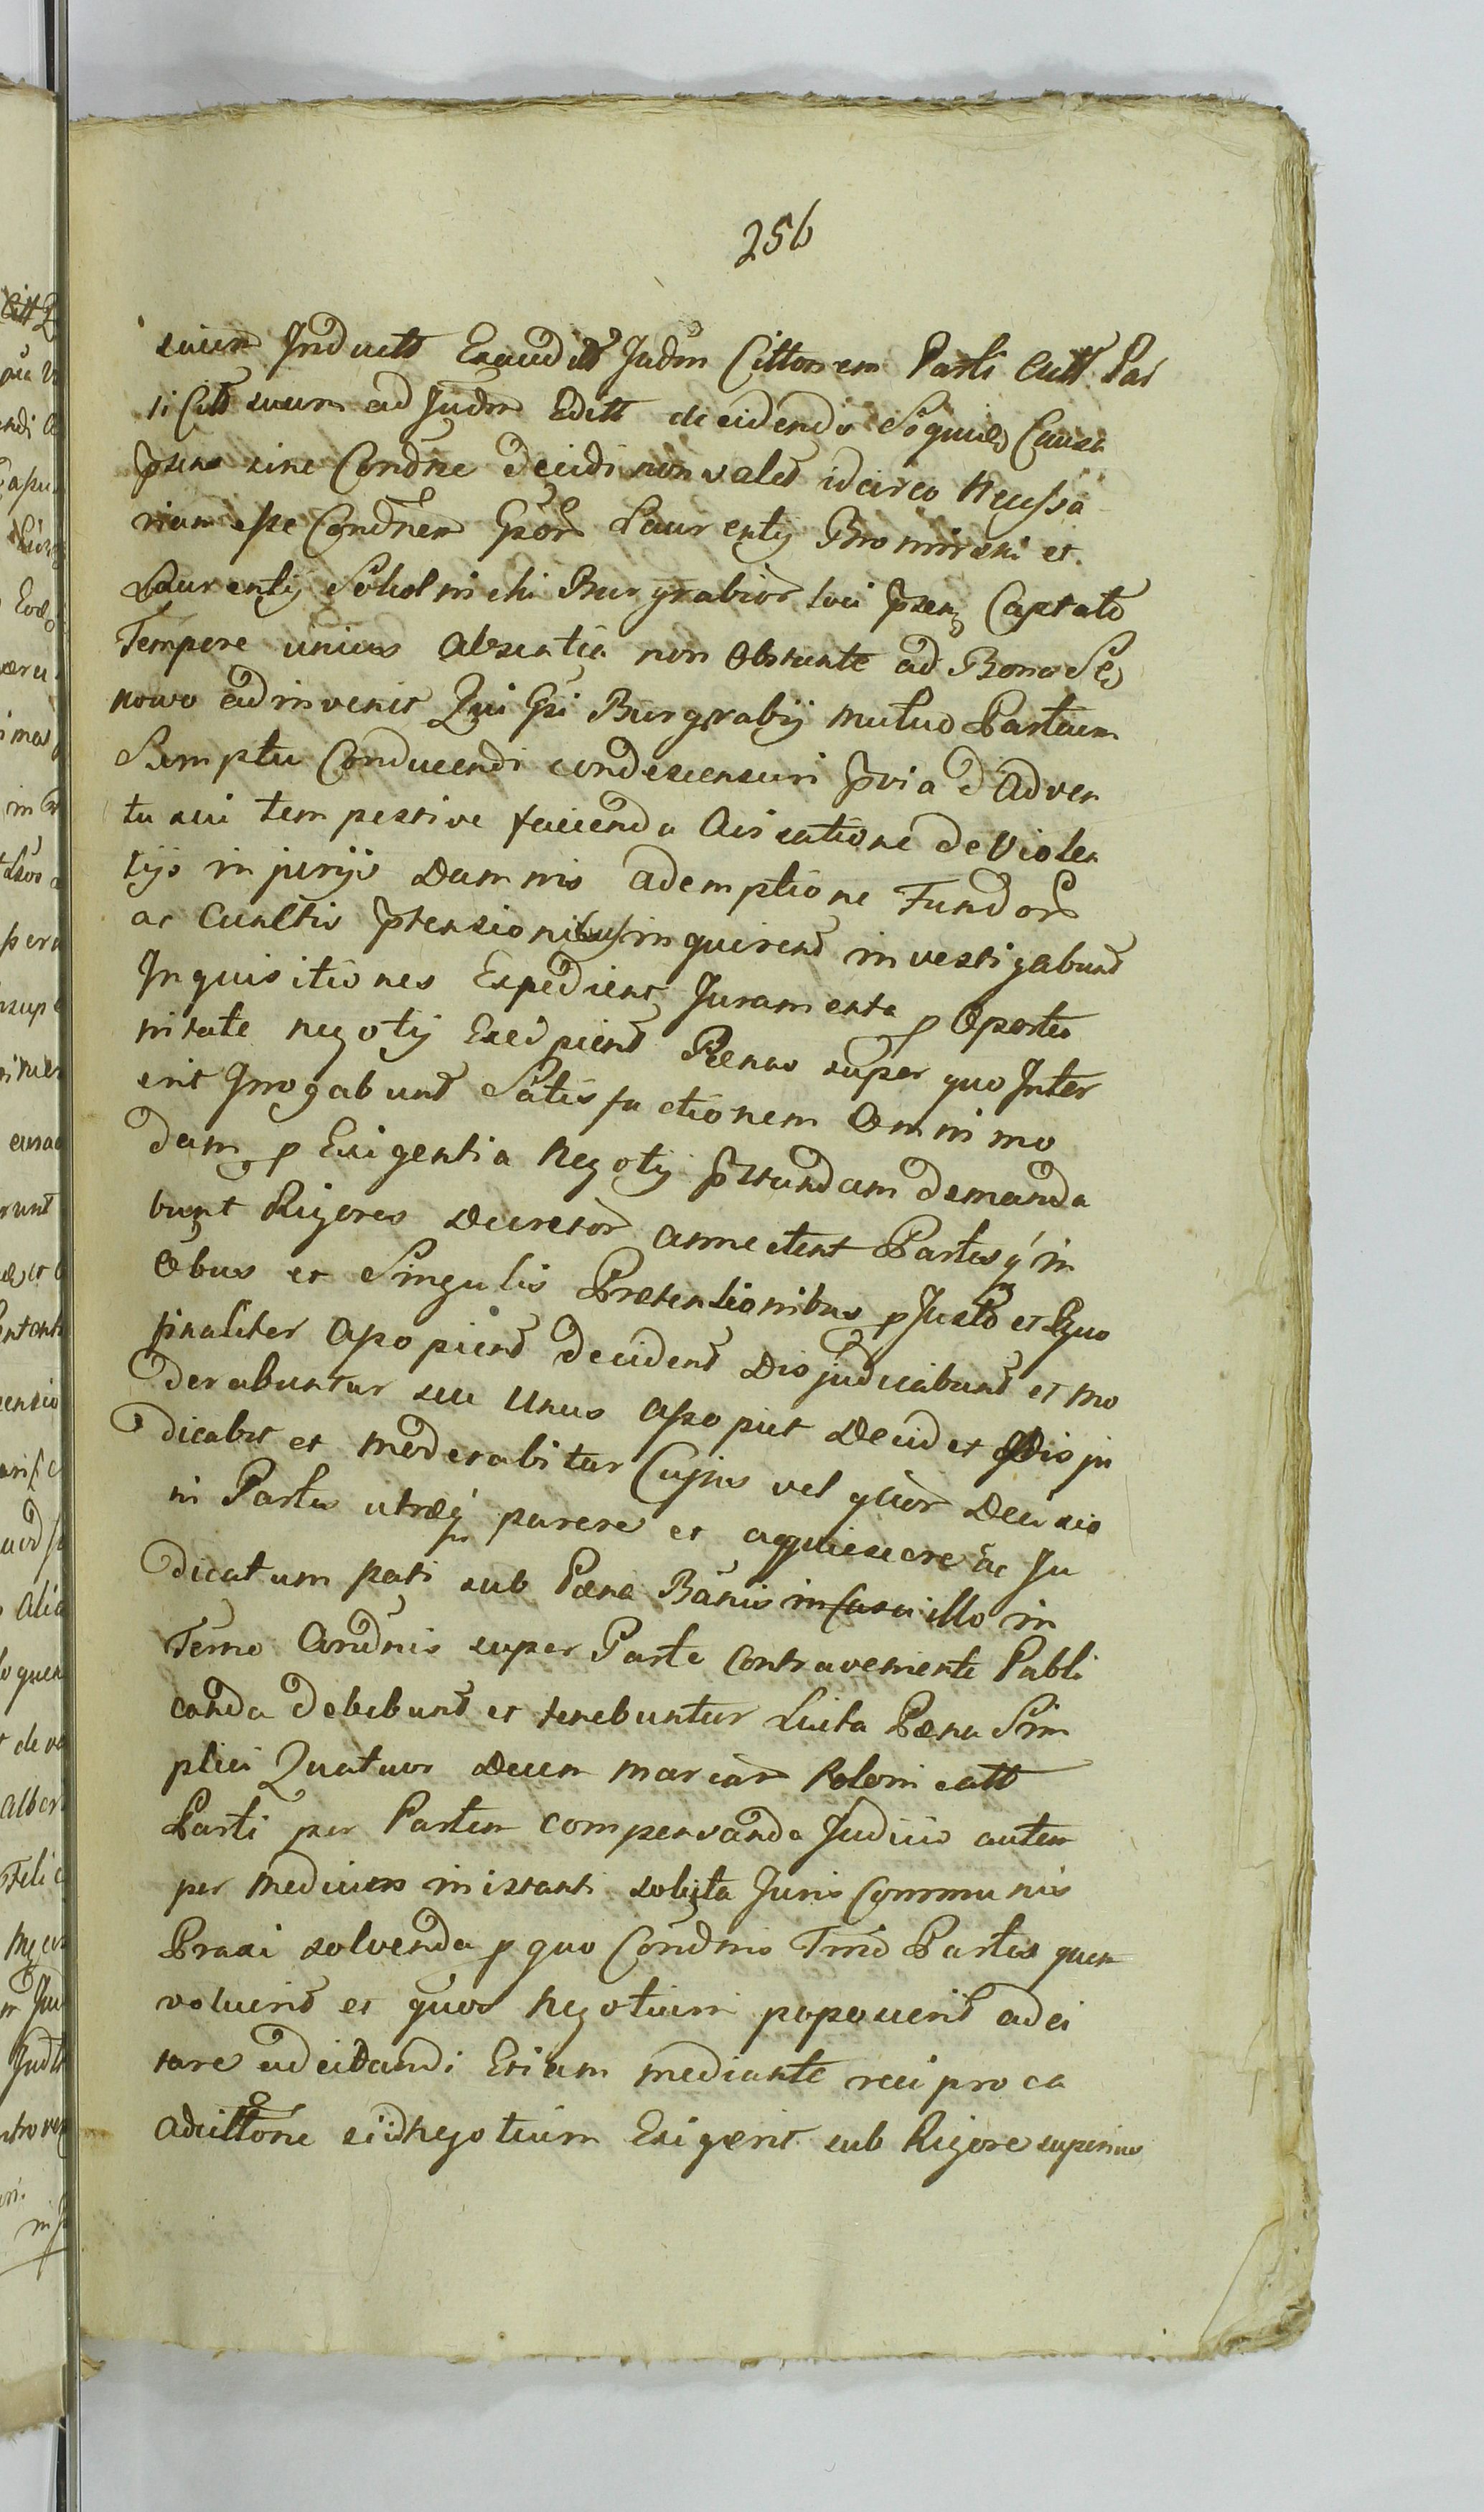 256
suum Inducta Exaudita Judm Cittonem Parti Citt Par
ti Citt suam ad Judm Editt decidendo Siquid Causa
psens sine Condne decidi non valet idcirco Necessa
riam esse Condnem Gsor Laurentij Bromirski et
Laurentij Sokolnicki Burgrabior loci psen Captato
Tempore unius absentia non Obstante ad Bona Se
nowo adinvenit Qui Gsi Burgrabij mutuo Partium
Sumptu Conducendi condescensuri pvia d Adven
tu sui tempestive facienda Avisatione de Violen
tijs injurijs Damnis ademptione Fundor
ac Cunctis ptensionibus inquirent investigabunt
Inquisitiones Expedient Juramenta p Oportu
nitate negotij Excipient Pænas super quo Inter
erit Irrogabunt Satisfactionem Omnimo
dam p Exigentia Negotij pstandam demanda
bunt Rigores Decretor annectent Partes q in
Oibus et Singulis Prætensionibus p Justo et Equo
finaliter Compopient Decident Disjudicabunt et mo
derabuntur seu Unus Compopiet Decidet Disju
dicabit et moderabitur Cujus vel quor Decisio
ni Partes utræq parere et acquiescere ac Ju
dicatum pati sub Pæna Banis in casu illo in
Termo Condnis super Parte Contraveniente Publi
canda debebunt et tenebuntur Luita Pæna Sim
plici Quatuor Decem marcar Polonicatt
Parti per Partem compensanda Judicio autem
per medium in istanti soluta Juris Communis
Praxi solvenda p quo Condnis Trmo Partes quem
voluerit et quos Negotium poposcerit adci
tare adcitandi Etiam mediante reciproca
adcittone si id Negotium Exigerit sub Rigore superius